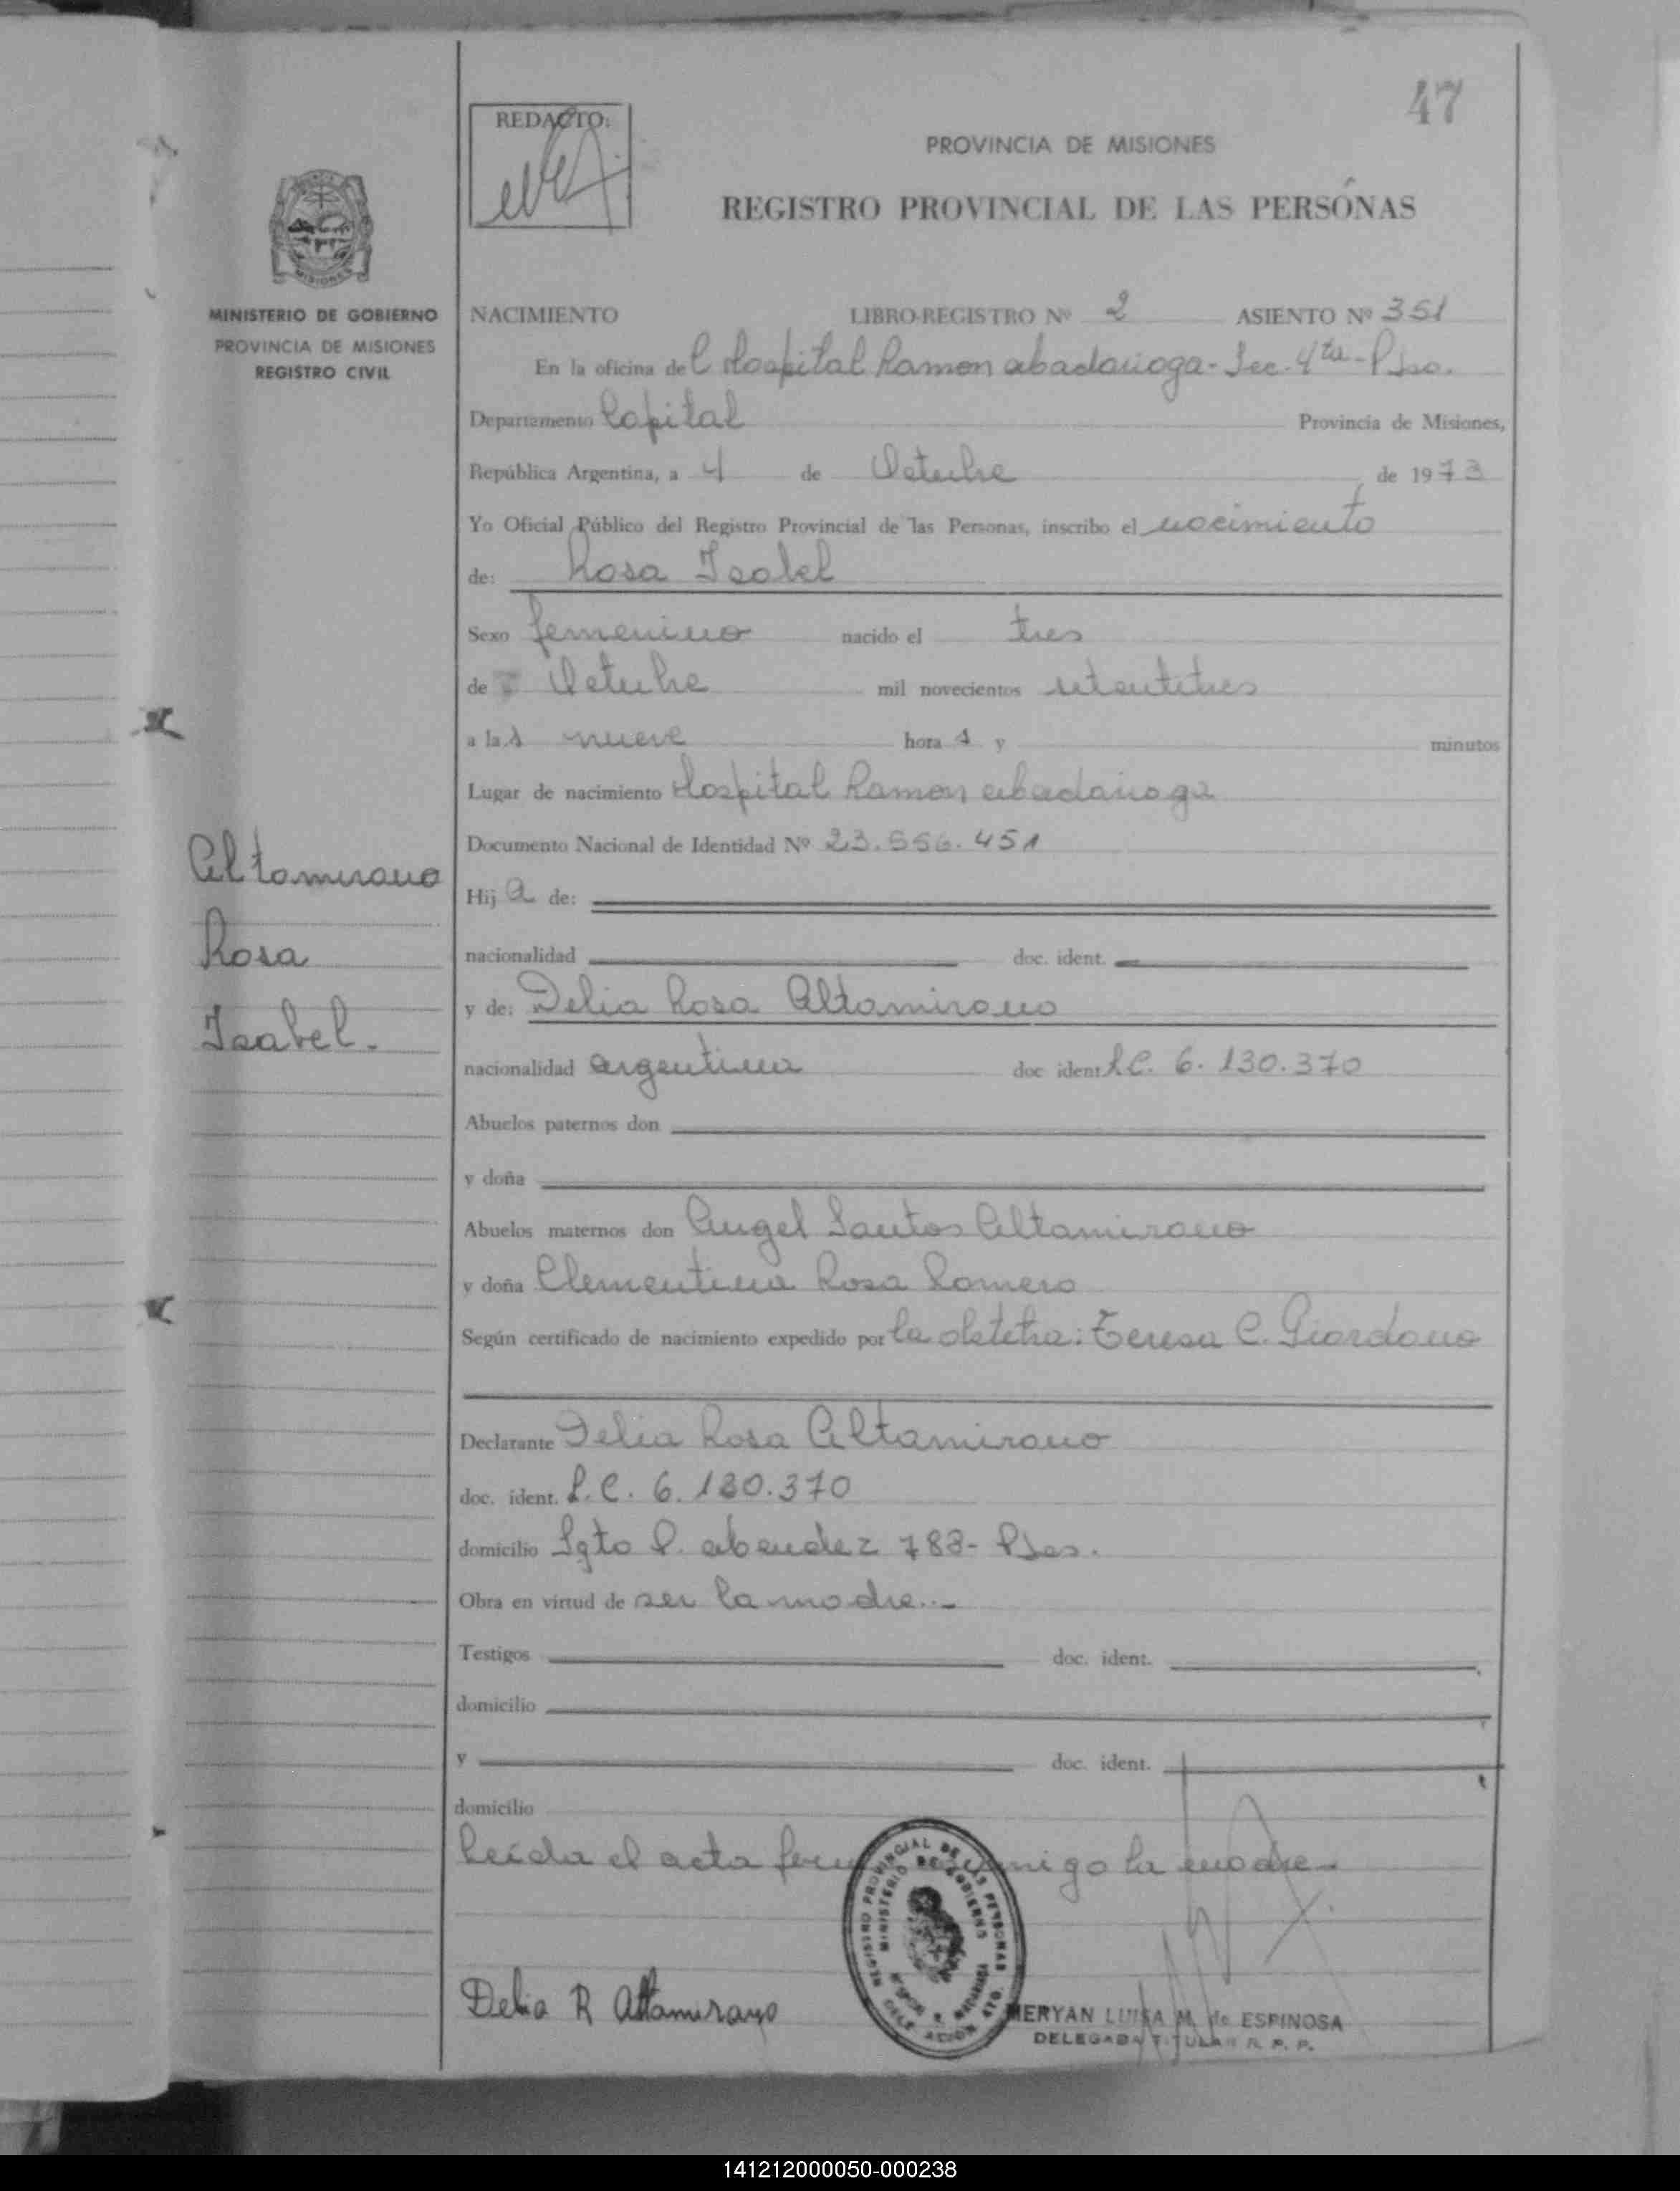 47
REDACTO:
PROVINCIA DE MISIONES
REGISTRO PROVINCIAL DE LAS PERSONAS
MISIONES
MINISTERIO DE GOBIERNO
PROVINCIA DE MISIONES
REGISTRO CIVIL
NACIMIENTO LIBRO-REGISTRO Nº 2 ASIENTO Nº 351
En la oficina del Hospital Ramon Madariaga - Sec. 4ta - Pdas.
Departamento Capital Provincia de Misiones,
República Argentina, a 4 de Octubre de 1973
Yo Oficial Público del Registro Provincial de las Personas, inscribo el nacimiento
de: Rosa Isabel
Sexo femenino nacido el tres
de Octubre mil novecientos setentitres
a las nueve hora s y minutos
Lugar de nacimiento Hospital Ramon Madariaga
Documento Nacional de Identidad Nº 23.556.451
Altamirano
Rosa
Isabel.
Hij a de:
nacionalidad doc. ident.
y de: Delia Rosa Altamirano
nacionalidad argentina doc ident L.C. 6.130.370
Abuelos paternos don
y doña
Abuelos maternos don Angel Santos Altamirano
y doña Clementina Rosa Romero
Según certificado de nacimiento expedido por la obstetra: Teresa C. Giordano
Declarante Delia Rosa Altamirano
doc. ident. L.C. 6.130.370
domicilio Sgto P. Mendez 788- Pdas.
Obra en virtud de ser la madre.-
Testigos doc. ident.
domicilio
y doc. ident.
domicilio
Leída el acta conmigo la madre.-
REGISTRO PROVINCIAL DE LAS PERSONAS
MINISTERIO DE GOBIERNO
Delia R Altamirano
MERYAN LUISA M. de ESPINOSA
DELEGADA TITULAR R. P. P.
141212000050-000238